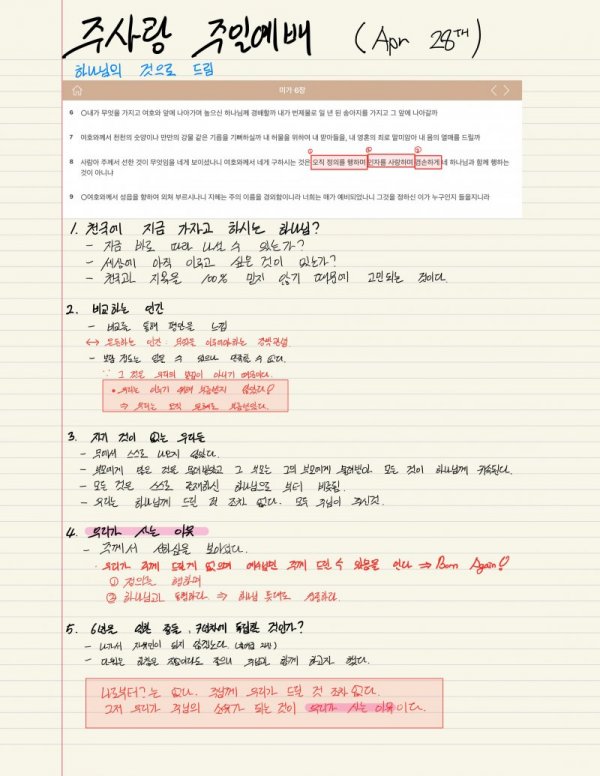 주사랑 주일예배 (Apr 28th)
하나님의 것으로 드림
미가 6장
6 ○내가 무엇을 가지고 여호와 앞에 나아가며 높으신 하나님께 경배할까 내가 번제물로 일 년 된 송아지를 가지고 그 앞에 나아갈까
7 여호와께서 천천의 숫양이나 만만의 강물 같은 기름을 기뻐하실까 내 허물을 위하여 내 맏아들을, 내 영혼의 죄로 말미암아 내 몸의 열매를 드릴까
8 사람아 주께서 선한 것이 무엇임을 네게 보이셨나니 여호와께서 네게 구하시는 것은 오직 정의를 행하며 인자를 사랑하며 겸손하게 네 하나님과 함께 행하는
것이 아니냐
9 ○여호와께서 성읍을 향하여 외쳐 부르시나니 지혜는 주의 이름을 경외함이니라 너희는 매가 예비되었나니 그것을 정하신 이가 누구인지 들을지니라
1. 천국에 지금 가자고 하시는 하나님?
- 지금 바로 따라 나설 수 있는가?
- 세상에 아직 이루고 싶은 것이 있는가?
- 천국과 지옥을 100% 믿지 않기 때문에 고민되는 것이다.
2. 비교하는 인간
- 비교를 통해 평안을 느낌
↔ 운동하는 인간:
- 보람 정도는 얻을 수 있으나 만족할 수 없다.
∵ 그것은 우리의 본질이 아니기 때문이다.
• 우리는 이루기 위해 부름받지 않았다!
⇒ 우리는 오직 은혜로 부름받았다.
3. 자기 것이 없는 우리들
- 무에서 스스로 나오지 않았다.
- 부모에게 많은 것을 물려받았고 그 부모는 그의 부모에게 물려받아 모든 것이 하나님께 귀속된다.
- 모든 것은 스스로 존재하신 하나님으로 부터 비롯됨.
- 우리는 하나님께 드린 적 조차 없다. 모두 주님이 주신것.
4. 우리가 사는 이유
- 주께서 선하심을 보이셨다.
• 우리가 주께 드릴게 없으며 예수님만 주께 드릴 수 있음을 안다 ⇒ Born Again!
① 정의를 행하며
② 하나님과 동행하다 ⇒ 하나님 뜻대로 성공하다.
5. 6년은 일한 종들, 7년차에 독립할 것인가?
- 나가서 자유인이 되지 않겠는다.
- 다윗은 하찮은 직임이라도 좋으니 주님과 함께 하고자 했다.
나로부터?는 없다. 주님께 우리가 드릴 것 조차 없다.
그저 우리가 주님의 소유가 되는 것이 우리가 사는 이유이다.